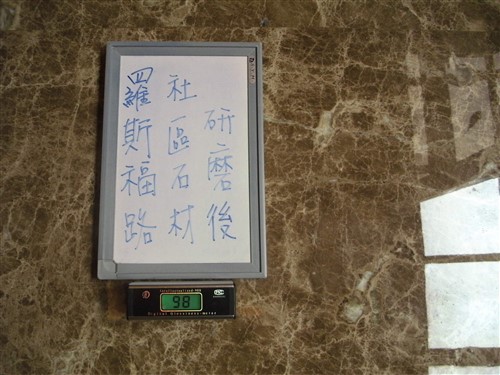 羅斯福路
社區石材
研磨後
98
Digital Glossmeter